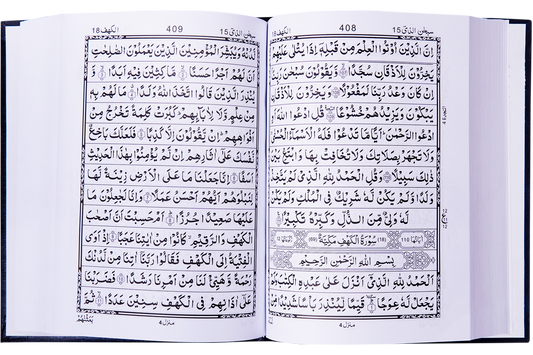 سبحٰن الذی 15
408
الکھف 18
اِنَّ الَّذِيْنَ اُوْتُوا الْعِلْمَ مِنْ قَبْلِهٖٓ اِذَا يُتْلٰى عَلَيْهِمْ
يَخِرُّوْنَ لِلْاَذْقَانِ سُجَّدًا وَّيَقُوْلُوْنَ سُبْحٰنَ رَبِّنَآ
اِنْ كَانَ وَعْدُ رَبِّنَا لَمَفْعُوْلًا وَيَخِرُّوْنَ لِلْاَذْقَانِ
يَبْكُوْنَ وَيَزِيْدُهُمْ خُشُوْعًا قُلِ ادْعُوا اللّٰهَ اَوِ
ادْعُوا الرَّحْمٰنَ اَيًّا مَّا تَدْعُوْا فَلَهُ الْاَسْمَآءُ الْحُسْنٰى
وَلَا تَجْهَرْ بِصَلَاتِكَ وَلَا تُخَافِتْ بِهَا وَابْتَغِ بَيْنَ
ذٰلِكَ سَبِيْلًا وَقُلِ الْحَمْدُ لِلّٰهِ الَّذِيْ لَمْ يَتَّخِذْ
وَلَدًا وَّلَمْ يَكُنْ لَّهٗ شَرِيْكٌ فِي الْمُلْكِ وَلَمْ يَكُنْ
لَّهٗ وَلِيٌّ مِّنَ الذُّلِّ وَكَبِّرْهُ تَكْبِيْرًا
اٰیاتها 110 (18) سُوْرَةُ الْكَهْفِ مَكِّيَّةٌ (69) رکوعاتها 12
بِسْمِ اللّٰهِ الرَّحْمٰنِ الرَّحِيْمِ
اَلْحَمْدُ لِلّٰهِ الَّذِيْٓ اَنْزَلَ عَلٰى عَبْدِهِ الْكِتٰبَ وَلَمْ
يَجْعَلْ لَّهٗ عِوَجًا قَيِّمًا لِّيُنْذِرَ بَاْسًا شَدِيْدًا مِّنْ
منزل 4
سبحٰن الذی 15
409
الکھف 18
لَّدُنْهُ وَيُبَشِّرَ الْمُؤْمِنِيْنَ الَّذِيْنَ يَعْمَلُوْنَ الصّٰلِحٰتِ
اَنَّ لَهُمْ اَجْرًا حَسَنًا مَّاكِثِيْنَ فِيْهِ اَبَدًا وَّ
يُنْذِرَ الَّذِيْنَ قَالُوا اتَّخَذَ اللّٰهُ وَلَدًا مَا لَهُمْ بِهٖ
مِنْ عِلْمٍ وَّلَا لِاٰبَآئِهِمْ كَبُرَتْ كَلِمَةً تَخْرُجُ مِنْ
اَفْوَاهِهِمْ اِنْ يَّقُوْلُوْنَ اِلَّا كَذِبًا فَلَعَلَّكَ بَاخِعٌ
نَّفْسَكَ عَلٰٓى اٰثَارِهِمْ اِنْ لَّمْ يُؤْمِنُوْا بِهٰذَا الْحَدِيْثِ
اَسَفًا اِنَّا جَعَلْنَا مَا عَلَى الْاَرْضِ زِيْنَةً لَّهَا
لِنَبْلُوَهُمْ اَيُّهُمْ اَحْسَنُ عَمَلًا وَاِنَّا لَجٰعِلُوْنَ مَا
عَلَيْهَا صَعِيْدًا جُرُزًا اَمْ حَسِبْتَ اَنَّ اَصْحٰبَ
الْكَهْفِ وَالرَّقِيْمِ كَانُوْا مِنْ اٰيٰتِنَا عَجَبًا اِذْ اَوَى
الْفِتْيَةُ اِلَى الْكَهْفِ فَقَالُوْا رَبَّنَآ اٰتِنَا مِنْ لَّدُنْكَ
رَحْمَةً وَّهَيِّئْ لَنَا مِنْ اَمْرِنَا رَشَدًا فَضَرَبْنَا
عَلٰٓى اٰذَانِهِمْ فِي الْكَهْفِ سِنِيْنَ عَدَدًا ثُمَّ
بَعَثْنٰهُمْ
منزل 4